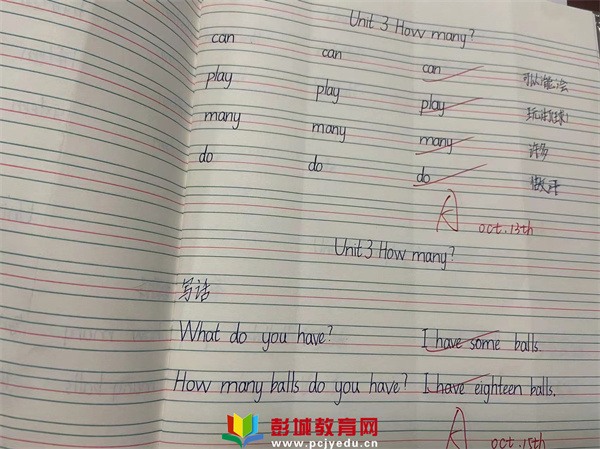 Unit 3 How many?
can can can 可以;能;会
play play play 玩;打(球)
many many many 许多
do do do 做;干
A oct.13th
Unit 3 How many?
写话
What do you have? I have some balls.
How many balls do you have? I have eighteen balls.
A oct.15th
彭城教育网
www.pcjyedu.cn